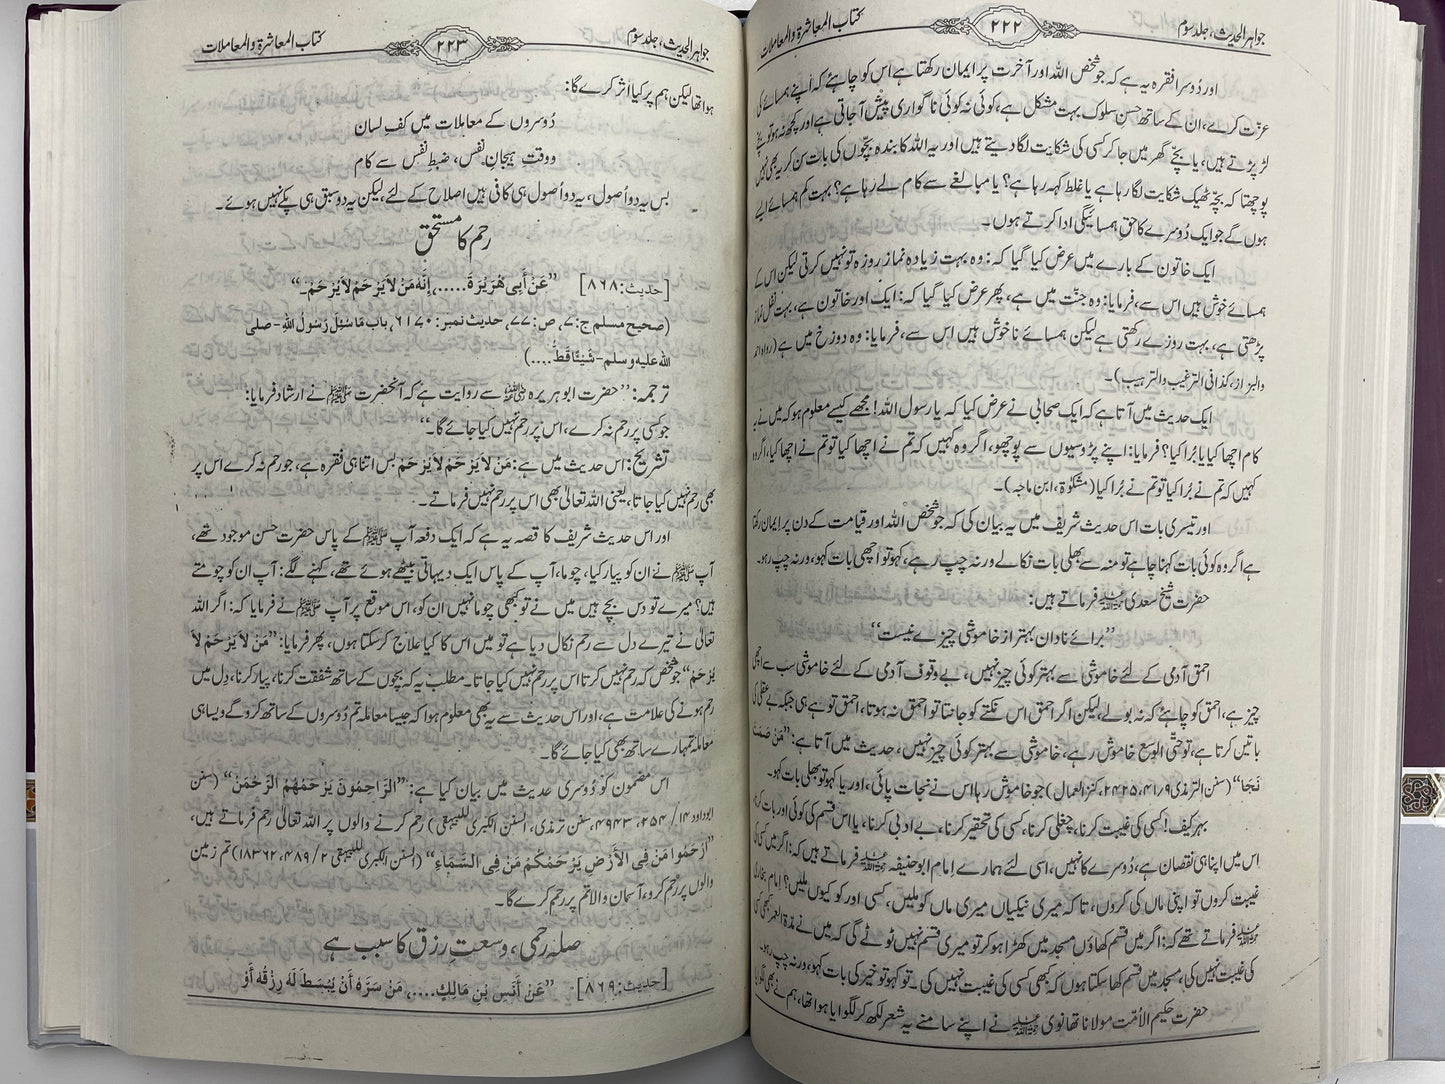 جواہر الحدیث، جلد سوم ۲۲۲ کتاب المعاشرۃ والمعاملات
اور دُوسرا فقرہ یہ ہے کہ جو شخص اللہ اور آخرت پر ایمان رکھتا ہے اس کو چاہئے کہ اپنے ہمسائے کی
عزّت کرے، ان کے ساتھ حسنِ سلوک بہت مشکل ہے، کوئی نہ کوئی ناگواری پیش آجاتی ہے اور کچھ نہ ہو تو بچے
لڑ پڑتے ہیں، یا بچے گھر میں جا کر کسی کی شکایت لگا دیتے ہیں اور یہ اللہ کا بندہ بچّوں کی بات سن کر یہ بھی نہیں
پوچھتا کہ بچّہ ٹھیک شکایت لگا رہا ہے یا غلط کہہ رہا ہے؟ یا مبالغے سے کام لے رہا ہے؟ بہت کم ہمسائے ایسے
ہوں گے جو ایک دُوسرے کا حقِ ہمسائیگی ادا کرتے ہوں۔
ایک خاتون کے بارے میں عرض کیا گیا کہ: وہ بہت زیادہ نماز روزہ تو نہیں کرتی لیکن اس کے
ہمسائے خوش ہیں اس سے، فرمایا: وہ جنّت میں ہے، پھر عرض کیا گیا کہ: ایک اور خاتون ہے، بہت نفل نماز
پڑھتی ہے، بہت روزے رکھتی ہے لیکن ہمسائے ناخوش ہیں اس سے، فرمایا: وہ دوزخ میں ہے (رواہ احمد
والبزاز، کذا فی الترغیب والترہیب)۔
ایک حدیث میں آتا ہے کہ ایک صحابی نے عرض کیا کہ یا رسول اللہ! مجھے کیسے معلوم ہو کہ میں نے یہ
کام اچھا کیا یا بُرا کیا؟ فرمایا: اپنے پڑوسیوں سے پوچھو، اگر وہ کہیں کہ تم نے اچھا کیا تو تم نے اچھا کیا، اگر وہ
کہیں کہ تم نے بُرا کیا تو تم نے بُرا کیا (مشکوٰۃ، ابن ماجہ)۔
اور تیسری بات اس حدیث شریف میں یہ بیان کی کہ جو شخص اللہ اور قیامت کے دن پر ایمان رکھتا
ہے اگر وہ کوئی بات کہنا چاہے تو منہ سے بھلی بات نکالے ورنہ چپ رہے، کہو تو اچھی بات کہو، ورنہ چپ رہو۔
حضرت شیخ سعدی رحمۃ اللہ علیہ فرماتے ہیں:
”برائے نادان بہتر از خاموشی چیزے نیست“
احمق آدمی کے لئے خاموشی سے بہتر کوئی چیز نہیں، بے وقوف آدمی کے لئے خاموشی سب سے اچھی
چیز ہے، احمق کو چاہئے کہ نہ بولے، لیکن اگر احمق اس نکتے کو جانتا تو احمق نہ ہوتا، احمق تو ہے ہی جبکہ بے عقلی کی
باتیں کرتا ہے، تو حتّی الوسع خاموش رہے، خاموشی سے بہتر کوئی چیز نہیں، حدیث میں آتا ہے: ”مَنْ صَمَتَ
نَجَا“ (سنن الترمذی ۹/۴۱، ۲۴۲۵، کنز العمال) جو خاموش رہا اس نے نجات پائی، اور یا کہو تو بھلی بات کہو۔
بہر کیف! کسی کی غیبت کرنا، چغلی کرنا، کسی کی تحقیر کرنا، بے ادبی کرنا، یا اس قسم کی کوئی اور بات کرنا
اس میں اپنا ہی نقصان ہے، دُوسرے کا نہیں، اسی لئے ہمارے اِمام ابوحنیفہ رحمۃ اللہ علیہ فرماتے ہیں کہ: اگر میں کسی کی
غیبت کروں تو اپنی ماں کی کروں، تاکہ میری نیکیاں میری ماں کو ملیں، کسی اور کو کیوں ملیں؟ اِمام بخاری
رحمۃ اللہ علیہ فرماتے تھے کہ: اگر میں قسم کھاؤں مسجد میں کھڑا ہو کر تو میری قسم نہیں ٹوٹے گی کہ میں نے مدّۃ العمر کبھی کسی
کی غیبت نہیں کی، مسجد میں قسم کھا سکتا ہوں کہ کبھی کسی کی غیبت نہیں کی۔ تو کہو تو خیر کی بات کہو، ورنہ چپ رہو۔
حضرت حکیم الاُمّت مولانا تھانوی رحمۃ اللہ علیہ نے اپنے سامنے یہ شعر لکھ کر لگوایا ہوا تھا، ہم نے بھی لگوایا
جواہر الحدیث، جلد سوم ۲۲۳ کتاب المعاشرۃ والمعاملات
ہوا تھا لیکن ہم پر کیا اثر کرے گا:
دُوسروں کے معاملات میں کفِ لسان
ووقتِ ہیجانِ نفس، ضبطِ نفس سے کام
بس یہ دو اُصول، یہ دو اُصول ہی کافی ہیں اصلاح کے لئے، لیکن یہ دو سبق ہی پکے نہیں ہوئے۔
رحم کا مستحق
[حدیث:۸۶۸] ”عَنْ أَبِی هُرَیْرَةَ.....، إِنَّهُ مَنْ لَا یَرْحَمْ لَا یُرْحَمْ۔“
(صحیح مسلم ج:۷، ص:۷۷، حدیث نمبر:۶۱۷۰، باب مَا سُئِلَ رَسُولُ اللهِ-صلی
الله علیه وسلم-شَیْئًا قَطُّ....)
ترجمہ: ”حضرت ابوہریرہ رضی اللہ عنہ سے روایت ہے کہ آنحضرت ﷺ نے ارشاد فرمایا:
جو کسی پر رحم نہ کرے، اس پر رحم نہیں کیا جائے گا۔“
تشریح: اس حدیث میں ہے: مَنْ لَا یَرْحَمْ لَا یُرْحَمْ بس اتنا ہی فقرہ ہے، جو رحم نہ کرے اس پر
بھی رحم نہیں کیا جاتا، یعنی اللہ تعالیٰ بھی اس پر رحم نہیں فرماتے۔
اور اس حدیث شریف کا قصہ یہ ہے کہ ایک دفعہ آپ ﷺ کے پاس حضرت حسن موجود تھے،
آپ ﷺ نے ان کو پیار کیا، چوما، آپ کے پاس ایک دیہاتی بیٹھے ہوئے تھے، کہنے لگے: آپ ان کو چومتے
ہیں؟ میرے تو دس بچے ہیں میں نے تو کبھی چوما نہیں ان کو، اس موقع پر آپ ﷺ نے فرمایا کہ: اگر اللہ
تعالیٰ نے تیرے دل سے رحم نکال دیا ہے تو میں اس کا کیا علاج کر سکتا ہوں، پھر فرمایا: ”مَنْ لَا یَرْحَمْ لَا
یُرْحَمْ“ جو شخص کہ رحم نہیں کرتا اس پر رحم نہیں کیا جاتا۔ مطلب یہ کہ بچوں کے ساتھ شفقت کرنا، پیار کرنا، دِل میں
رحم ہونے کی علامت ہے، اور اس حدیث سے یہ بھی معلوم ہوا کہ جیسا معاملہ تم دُوسروں کے ساتھ کرو گے ویسا ہی
معاملہ تمہارے ساتھ بھی کیا جائے گا۔
اس مضمون کو دُوسری حدیث میں بیان کیا ہے: ”الرَّاحِمُونَ یَرْحَمُهُمُ الرَّحْمٰنُ“ (سنن
ابوداود ۱۴/۲۵۴، ۴۹۴۳، سنن ترمذی، السنن الکبریٰ للبیہقی) رحم کرنے والوں پر اللہ تعالیٰ رحم فرماتے ہیں،
”ارْحَمُوا مَنْ فِی الْأَرْضِ یَرْحَمْکُمْ مَنْ فِی السَّمَاءِ“ (السنن الکبریٰ للبیہقی ۲/۴۸۹، ۱۸۳۶۲) تم زمین
والوں پر رحم کرو، آسمان والا تم پر رحم کرے گا۔
صلہ رحمی، وسعتِ رزق کا سبب ہے
[حدیث:۸۶۹] ”عَنْ أَنَسِ بْنِ مَالِكٍ....، مَنْ سَرَّهُ أَنْ یُبْسَطَ لَهُ رِزْقُهُ أَوْ